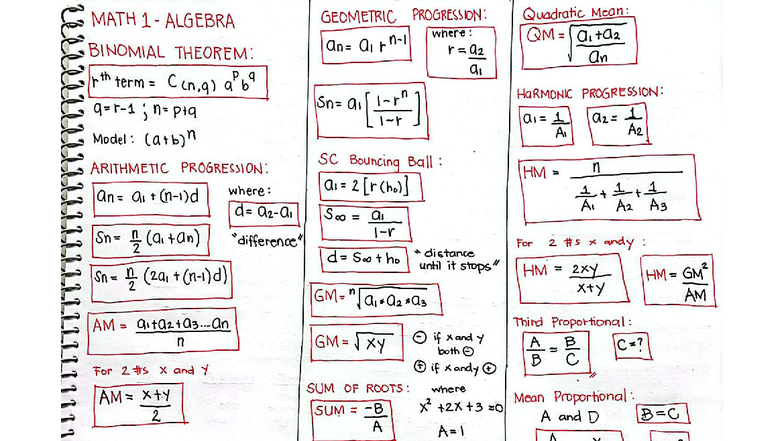 MATH 1 - ALGEBRA
BINOMIAL THEOREM:
rth term = C(n,q) a^p b^q
q = r-1 ; n = p+q
Model: (a+b)^n
ARITHMETIC PROGRESSION:
an = a1 + (n-1)d
where:
d = a2-a1
"difference"
Sn = n/2 (a1+an)
Sn = n/2 (2a1 + (n-1)d)
AM = a1+a2+a3...an / n
For 2 #s x and y
AM = x+y / 2
GEOMETRIC PROGRESSION:
an = a1 r^n-1
where:
r = a2/a1
Sn = a1 [1-r^n / 1-r]
SC Bouncing Ball:
a1 = 2 [r(ho)]
S∞ = a1 / 1-r
d = S∞ + ho
"distance
until it stops"
GM = n√a1*a2*a3
GM = √xy
⊖ if x and y
both ⊖
⊕ if x and y ⊕
SUM OF ROOTS:
SUM = -B/A
where
x² +2x +3 =0
A=1
Quadratic Mean:
QM = √a1+a2 / an
HaRMONIC PROGRESSION:
a1 = 1/A1
a2 = 1/A2
HM = n / 1/A1 + 1/A2 + 1/A3
For 2 #s x and y :
HM = 2xy / x+y
HM = GM² / AM
Third Proportional:
A/B = B/C
C = ?
Mean Proportional:
A and D
B = C